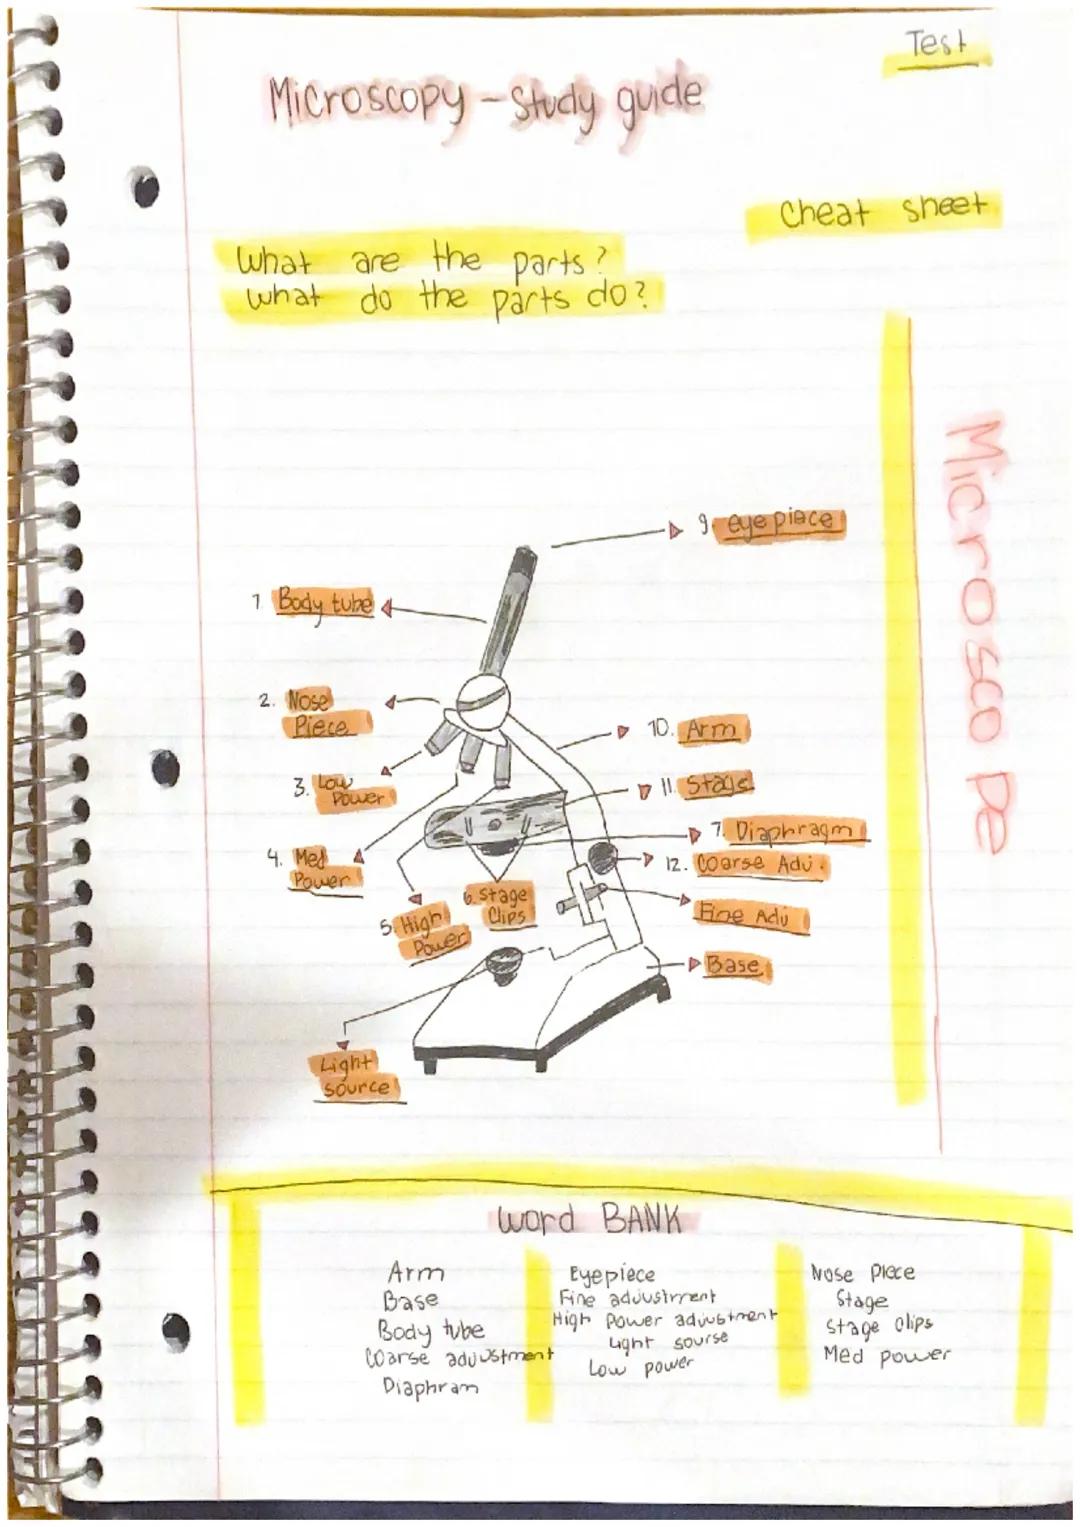 Test
Microscopy - Study guide
Cheat sheet
What are the parts?
what do the parts do?
Microscope
9. eye piece
1. Body tube
2. Nose
Piece
10. Arm
3. Low
Power
11. Stage
7. Diaphragm
4. Med
Power
12. Coarse Adj.
6. Stage
Clips
5. High
Power
Fine Adj
Base
Light
source
word BANK
Arm
Base
Body tube
Coarse adjustment
Diaphram
Eyepiece
Fine adjustment
High Power adjustment
Light sourse
Low power
Nose Piece
Stage
Stage clips
Med power